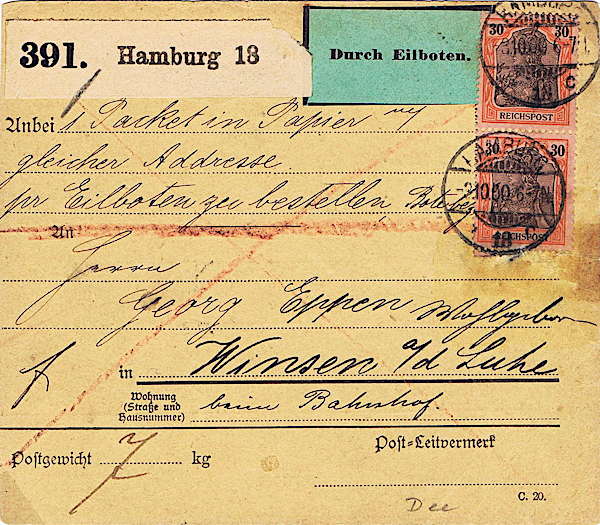 391. Hamburg 18
Durch Eilboten.
30 30
REICHSPOST
HAMBURG
2.10.00 6-7N.
18 C
30 30
REICHSPOST
HAMBURG
2.10.00 6-7N.
* 18 C
Anbei 1 Packet in Papier
gleicher Addresse
pr Eilboten zu bestellen
An
Herrn
Georg Eppen Wohlgeboren
in Winsen a/d Luhe
Wohnung
(Straße und
Hausnummer)
beim Bahnhof.
Postgewicht 7 kg
Post=Leitvermerk
C. 20.
Dee